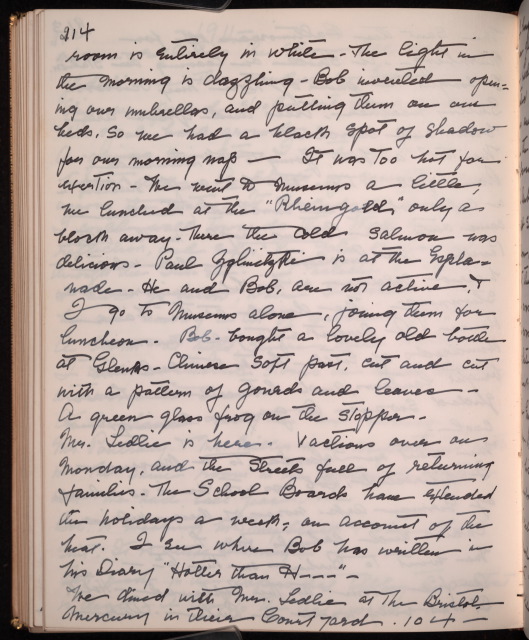 214
room is entirely in white - The light in
the morning is dazzling - Bob invented open=
ing our umbrellas, and putting them on our
beds, So we had a black spot of shadow
for our morning naps — It was too hot for
exertion - We went to Museums a little,
we lunched at the "Rheingold," only a
block away - There the cold salmon was
delicious - Paul is at the Espla-
nade - He and Bob, are not active, &
I go to Museums alone, joining them for
luncheon. Bob - bought a lovely old bottle
at Glenks - Chinese Soft past, cut and cut
with a pattern of gourds and leaves -
A green glass frog on the stopper -
Mrs. Ledlie is here - Vactions over on
Monday, and the streets full of returning
families - The School Boards have extended
the holidays a week, on account of the
heat. I see where Bob has written in
his Diary "Hotter than H---" -
We dined with Mrs. Ledlie at the Bristol.
Mercury in their Court yard. 104 -